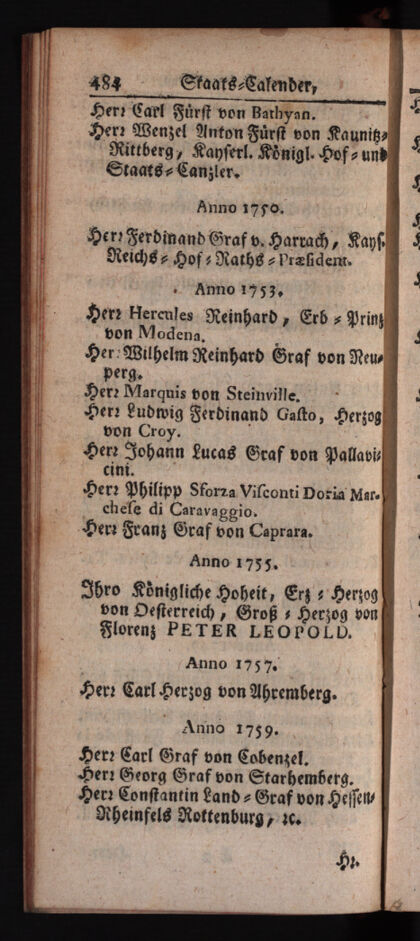 484 Staats-Calender,
Herr Carl Fürst von Bathyan.
Herr Wenzel Anton Fürst von Kaunitz-
Rittberg, Kayserl. Königl. Hof- und
Staats-Canzler.
Anno 1750.
Herr Ferdinand Graf v. Harrach, Kays.
Reichs-Hof-Raths-Præsident.
Anno 1753.
Herr Hercules Reinhard, Erb-Prinz
von Modena.
Herr Wilhelm Reinhard Graf von Neu-
perg.
Herr Marquis von Steinville.
Herr Ludwig Ferdinand Gasto, Herzog
von Croy.
Herr Johann Lucas Graf von Pallavi-
cini.
Herr Philipp Sforza Visconti Doria Mar-
chese di Caravaggio.
Herr Franz Graf von Caprara.
Anno 1755.
Ihro Königliche Hoheit, Erz-Herzog
von Oesterreich, Groß-Herzog von
Florenz PETER LEOPOLD.
Anno 1757.
Herr Carl Herzog von Ahremberg.
Anno 1759.
Herr Carl Graf von Cobenzel.
Herr Georg Graf von Starhemberg.
Herr Constantin Land-Graf von Hessen-
Rheinfels Rottenburg, ꝛc.
Hr.